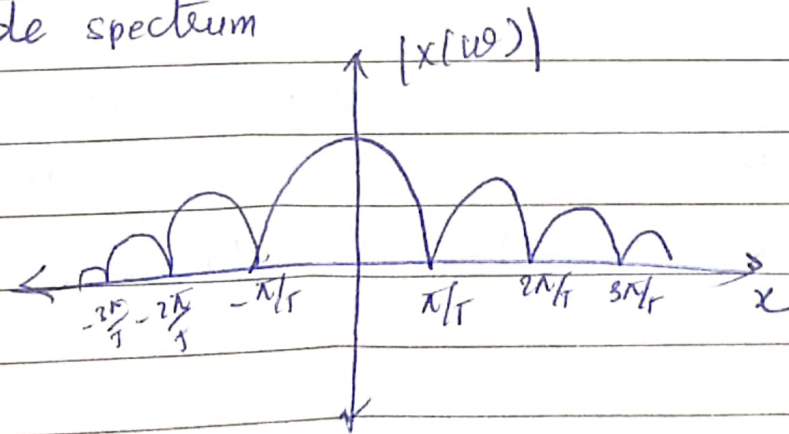 de spectrum
|X(ω)|
-3π/T -2π/T -π/T π/T 2π/T 3π/T x